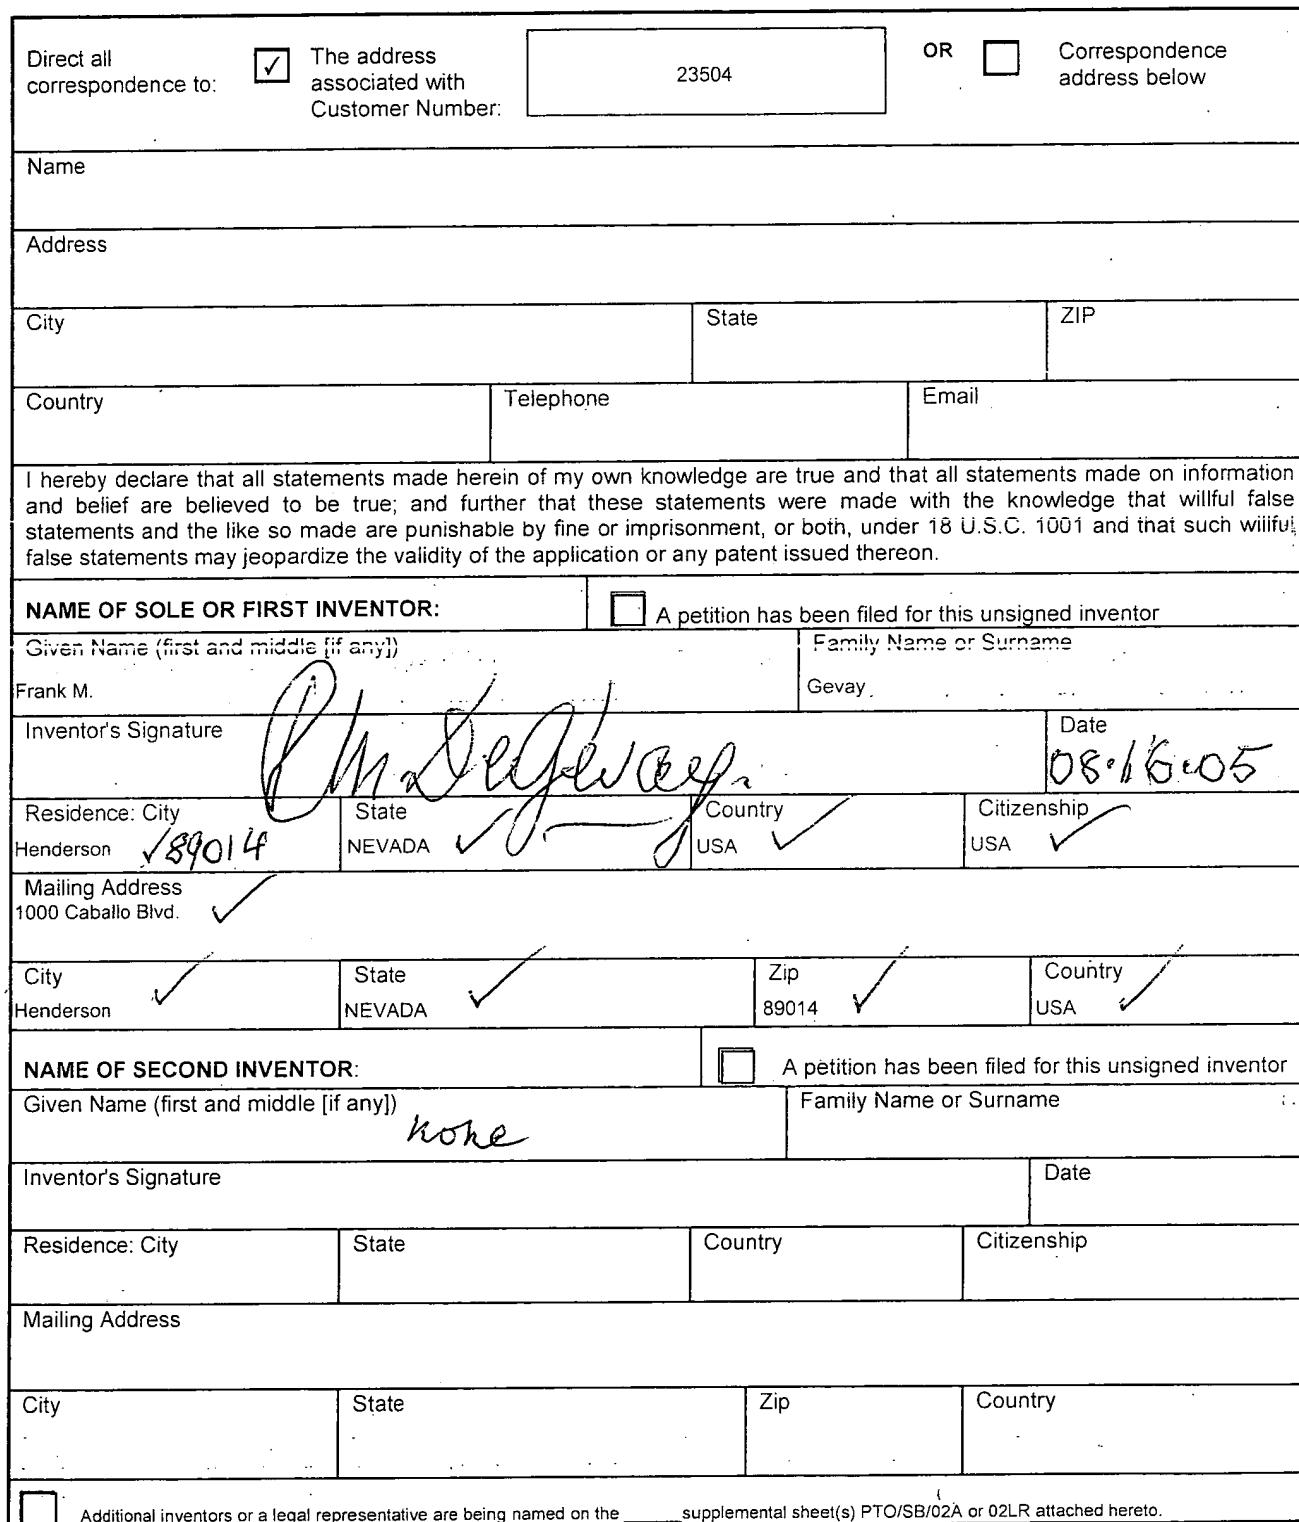 Direct all correspondence to: ✓ The address associated with Customer Number: 23504 OR Correspondence address below
Name
Address
City State ZIP
Country Telephone Email
I hereby declare that all statements made herein of my own knowledge are true and that all statements made on information
and belief are believed to be true; and further that these statements were made with the knowledge that willful false
statements and the like so made are punishable by fine or imprisonment, or both, under 18 U.S.C. 1001 and that such willful
false statements may jeopardize the validity of the application or any patent issued thereon.
NAME OF SOLE OR FIRST INVENTOR: A petition has been filed for this unsigned inventor
Given Name (first and middle [if any]) Family Name or Surname
Frank M. Gevay
Inventor's Signature Date
08-16-05
Residence: City State Country Citizenship
Henderson ✓ 89014 NEVADA ✓ USA ✓ USA ✓
Mailing Address
1000 Caballo Blvd. ✓
City State Zip Country
Henderson ✓ NEVADA ✓ 89014 ✓ USA ✓
NAME OF SECOND INVENTOR: A petition has been filed for this unsigned inventor
Given Name (first and middle [if any]) Family Name or Surname
none
Inventor's Signature Date
Residence: City State Country Citizenship
Mailing Address
City State Zip Country
Additional inventors or a legal representative are being named on the _____ supplemental sheet(s) PTO/SB/02A or 02LR attached hereto.